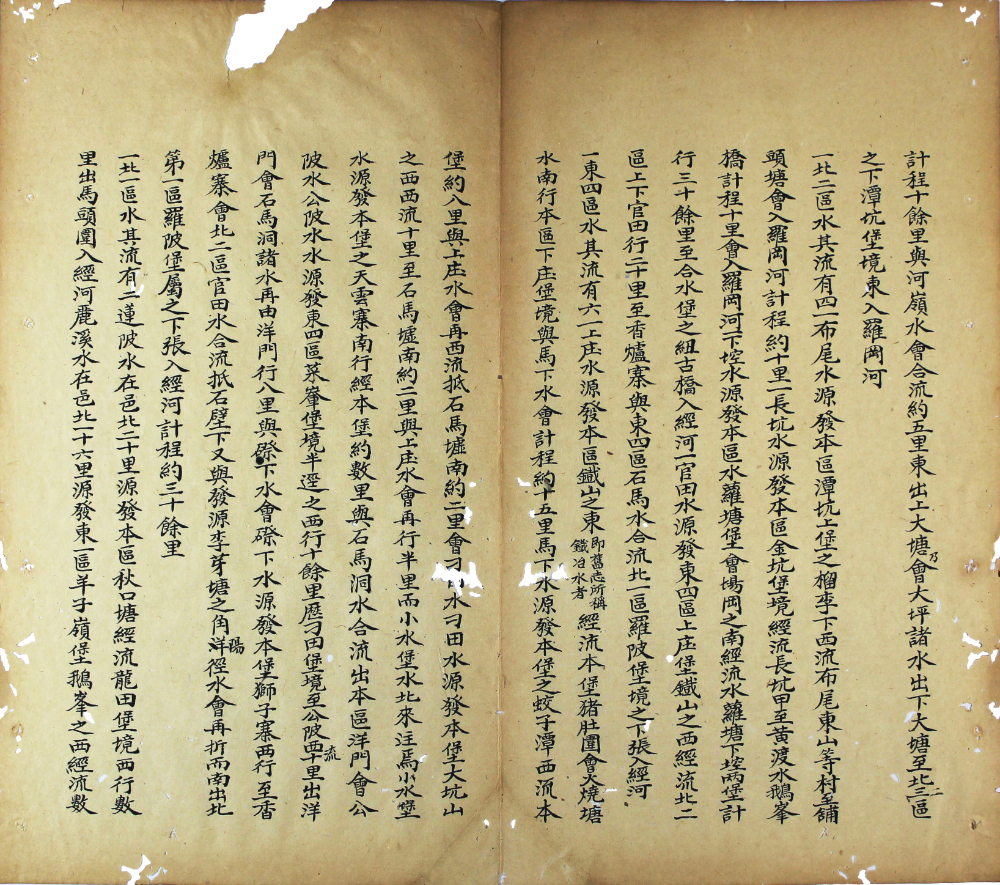 計程十餘里與河嶺水會合流約五里東出上大塘乃會大坪諸水出下大塘至北二區
之下潭坑堡境東入羅岡河
一北二區水其流有四一布尾水源發本區潭坑上堡之榴李下西流布尾東山等村至鋪
頭塘會入羅岡河計程約十里一長坑水源發本區金坑堡境經流長坑甲至黃渡水鵝峯
橋計程十里會入羅岡河一下埪水源發本區水蘿塘堡會塲岡之南經流水蘿塘下埪兩堡計
行三十餘里至合水堡之紐古橋入經河一官田水源發東四區上庄堡鐵山之西經流北二
區上下官田行二十里至香爐寨與東四區石馬水合流北一區羅陂堡境之下張入經河
一東四區水其流有六一上庄水源發本區鐵山之東即舊志所稱鐵冶水者經流本堡猪肚圍會火燒塘
水南行本區下庄堡境與馬下水會計程約十五里馬下水源發本堡之蚊子潭西流本
堡約八里與上庄水會再西流抵石馬墟南約二里會刁田水刁田水源發本堡大坑山
之西西流十里至石馬墟南約二里與上庄水會再行半里而小水堡水北來注焉小水堡
水源發本堡之天雲寨南行經本堡約數里與石馬洞水合流出本區洋門會公
陂水公陂水水源發東四區菜峯堡境半逕之西行十餘里歷刁田堡境至公陂西流十里出洋
門會石馬洞諸水再由洋門行八里與磜下水會磜下水源發本堡獅子寨西行至香
爐寨會北二區官田水合流抵石壁下又與發源李芽塘之角陽洋徑水會再折而南出北
第一區羅陂堡屬之下張入經河計程約三十餘里
一北一區水其流有二蓮陂水在邑北二十里源發本區秋口塘經流龍田堡境西行數
里出馬頭圍入經河麂溪水在邑北一十六里源發東一區羊子嶺堡鵝峯之西經流數